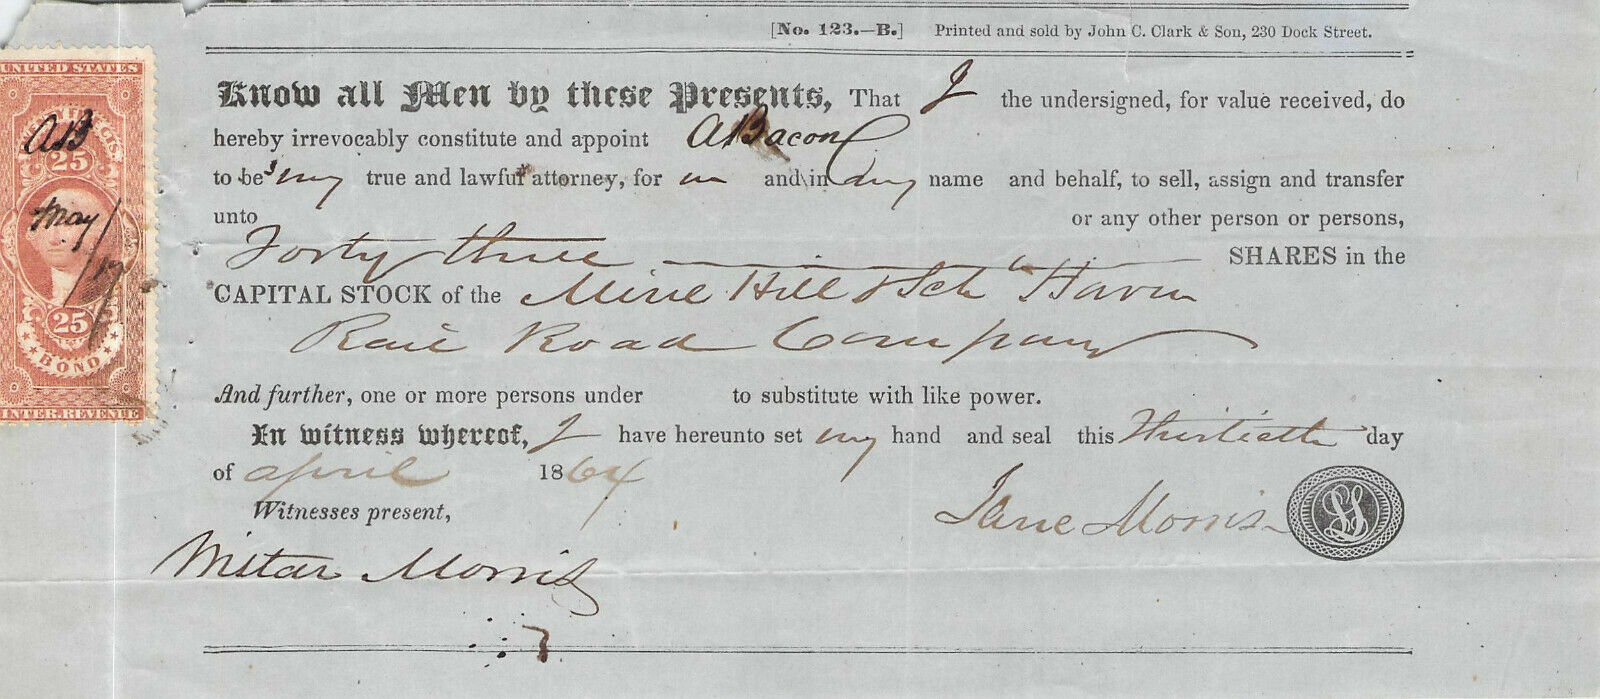 [No. 123.—B.] Printed and sold by John C. Clark & Son, 230 Dock Street.
UNITED STATES
25
AB
May/17
25
BOND
INTER. REVENUE
Know all Men by these Presents, That I the undersigned, for value received, do
hereby irrevocably constitute and appoint A Bacon
to be my true and lawful attorney, for me and in my name and behalf, to sell, assign and transfer
unto or any other person or persons,
Forty three SHARES in the
CAPITAL STOCK of the Mine Hill & Sch Haven
Rail Road Company
And further, one or more persons under to substitute with like power.
In witness whereof, I have hereunto set my hand and seal this Thirtieth day
of April 1864
Witnesses present, Jane Morris LS
Morris